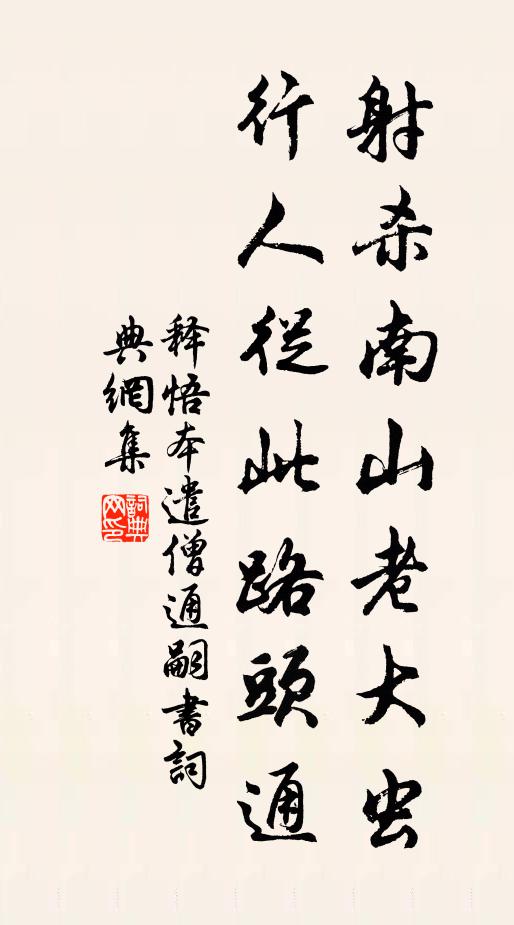 射杀南山老大虫
行人從此路頭通
释悟本遣僧通嗣書詞
典網集
詞典網印